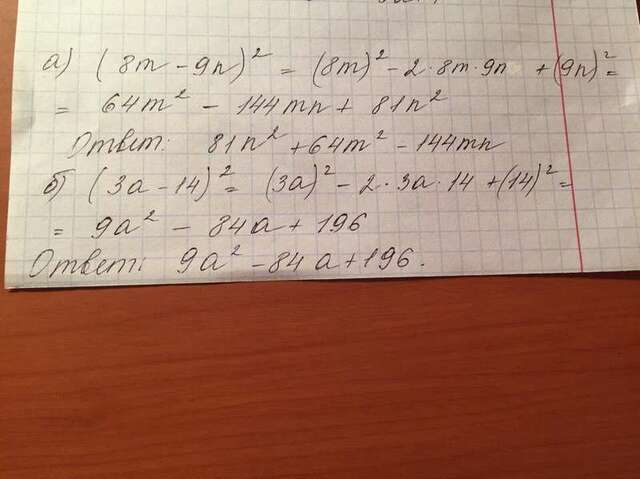 а) (8m - 9n)² = (8m)² - 2·8m·9n + (9n)² =
= 64m² - 144mn + 81n²
Ответ: 81n² + 64m² - 144mn
б) (3a - 14)² = (3a)² - 2·3a·14 + (14)² =
= 9a² - 84a + 196
Ответ: 9a² - 84a + 196.